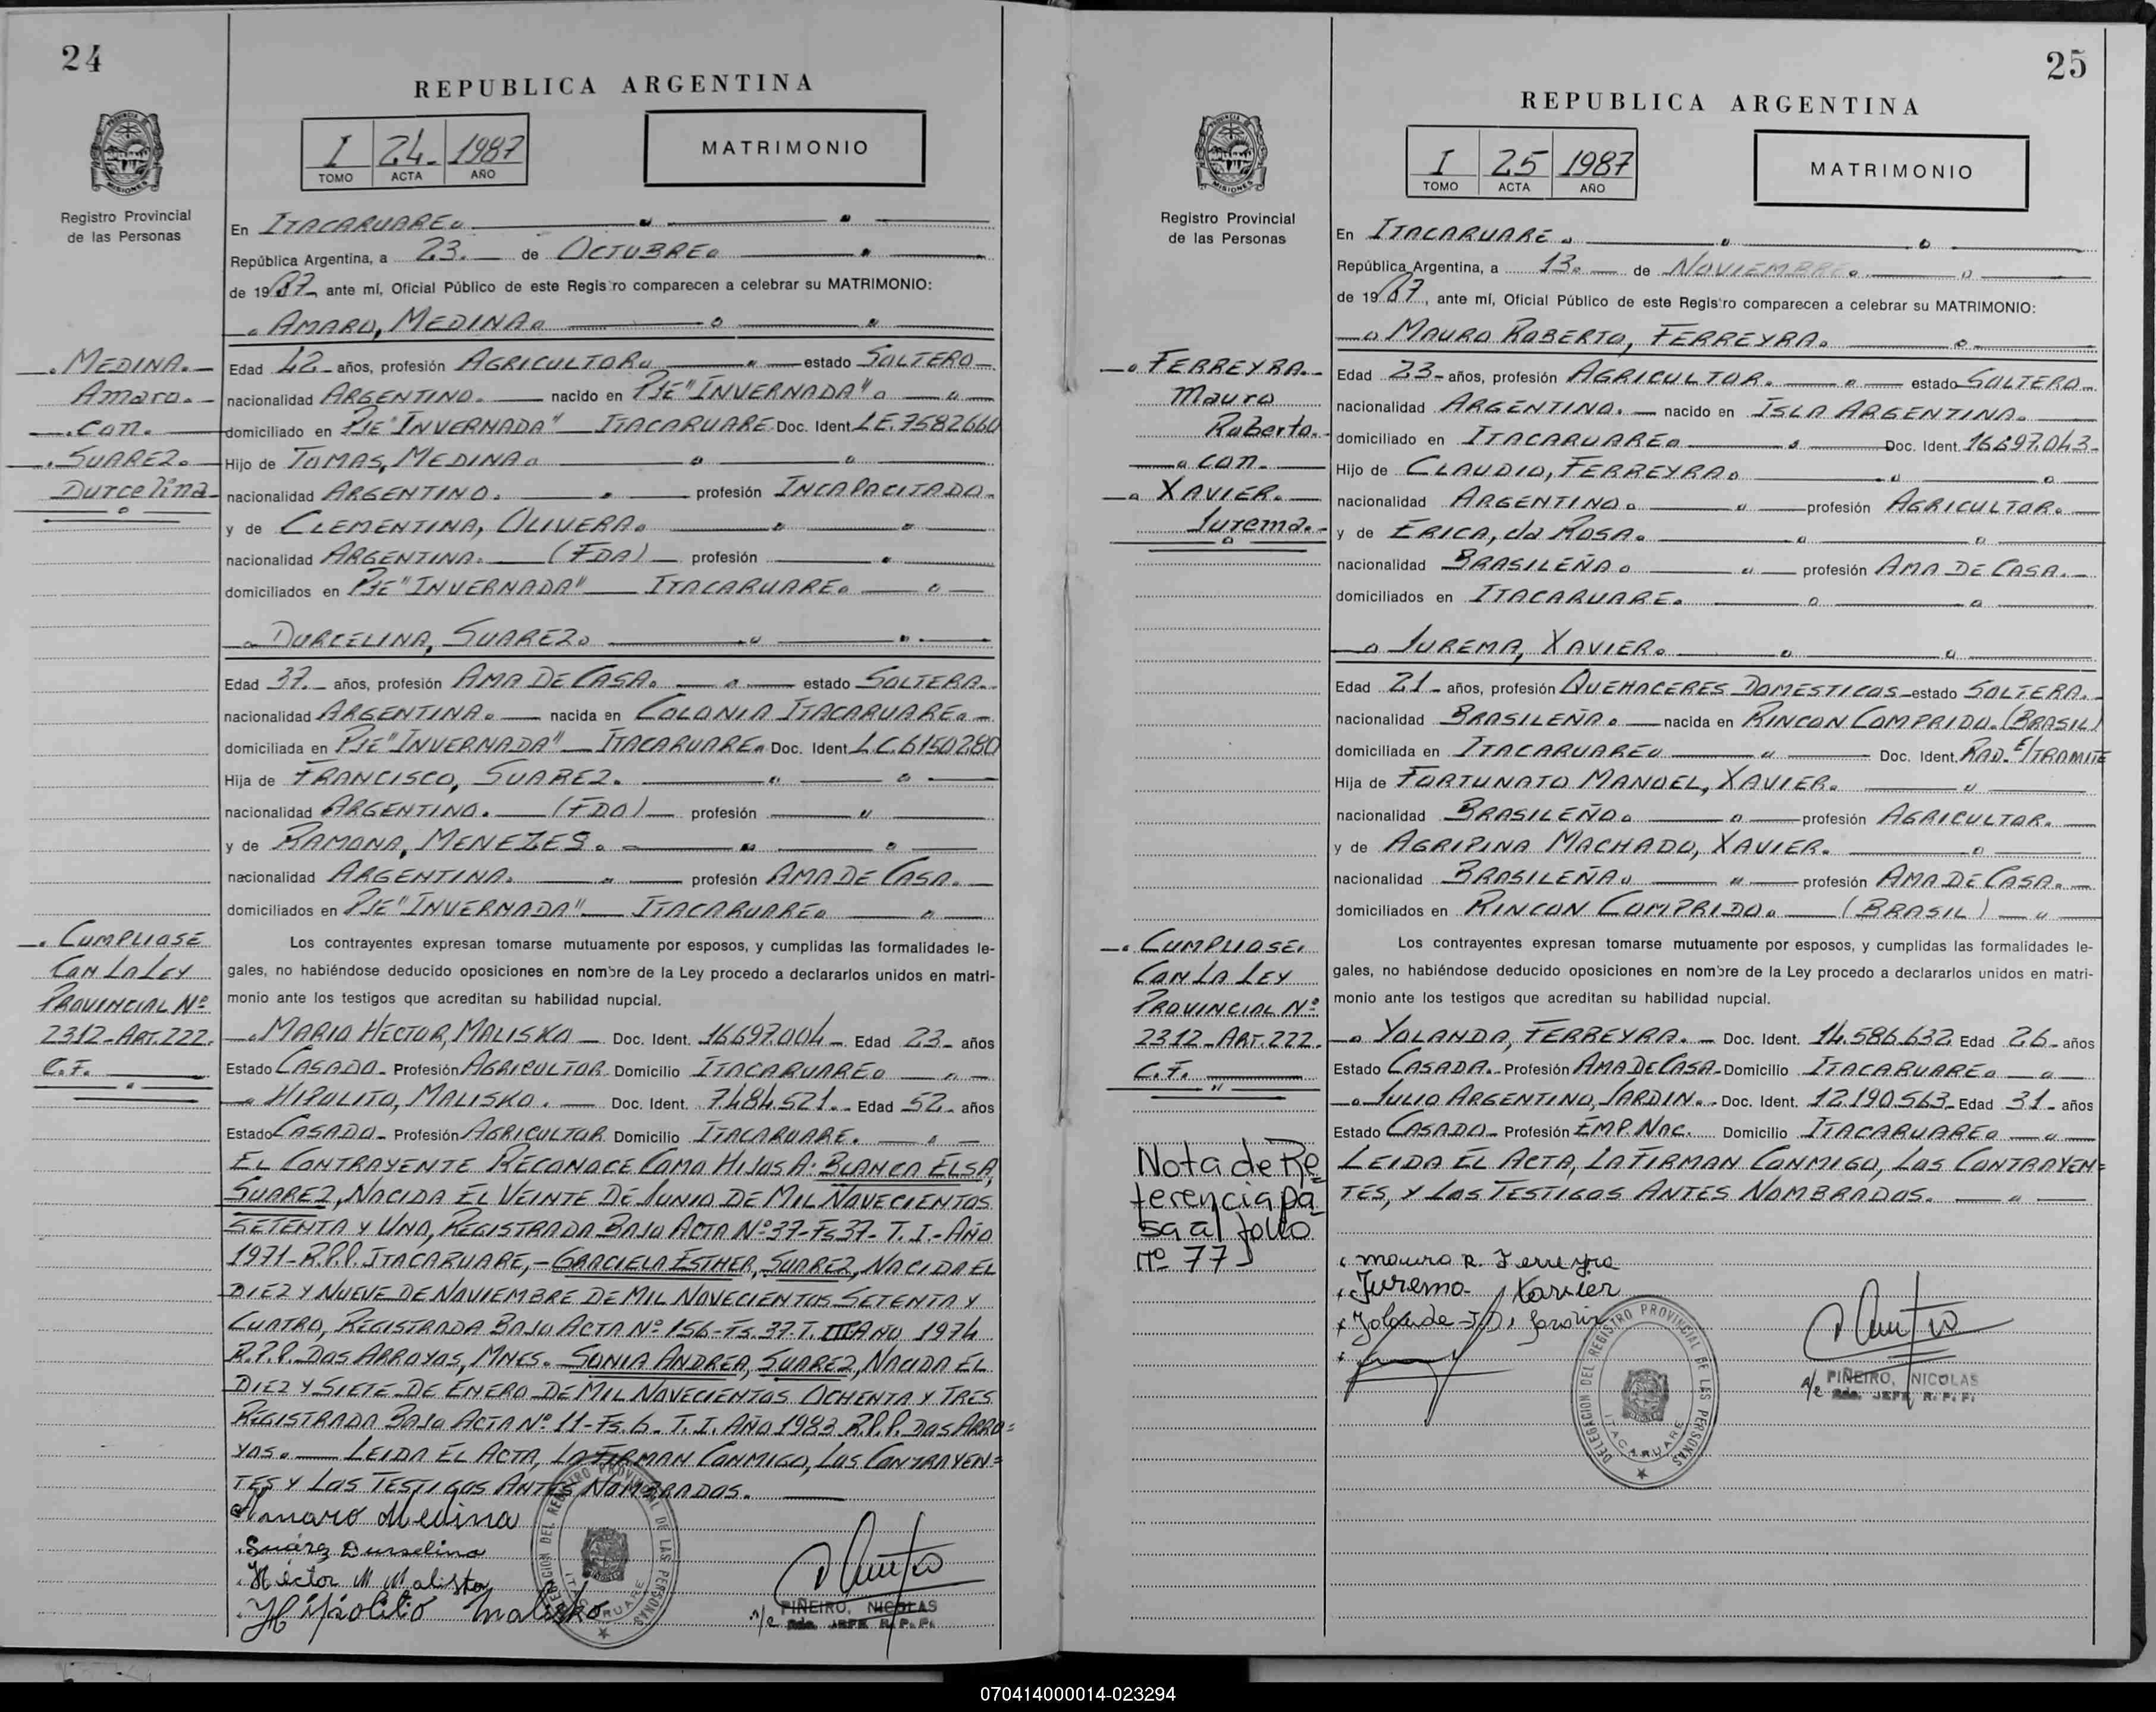 24
REPUBLICA ARGENTINA
I 24 1987
TOMO ACTA AÑO
MATRIMONIO
PROVINCIA DE MISIONES
Registro Provincial
de las Personas
En ITACARUARE.
República Argentina, a 23. de OCTUBRE.
de 1987 ante mí, Oficial Público de este Registro comparecen a celebrar su MATRIMONIO:
AMARO, MEDINA.
MEDINA.
Amaro.
con.
SUAREZ.
Durcelina
Edad 42 años, profesión AGRICULTOR. estado SOLTERO
nacionalidad ARGENTINO. nacido en PJE "INVERNADA"
domiciliado en PJE "INVERNADA" ITACARUARE Doc. Ident L.E. 7582660
Hijo de TOMAS, MEDINA.
nacionalidad ARGENTINO. profesión INCAPACITADO.
y de CLEMENTINA, OLIVERA.
nacionalidad ARGENTINA. (FDA) profesión
domiciliados en PJE "INVERNADA" ITACARUARE.
DURCELINA, SUAREZ.
Edad 37. años, profesión AMA DE CASA. estado SOLTERA.
nacionalidad ARGENTINA. nacida en COLONIA ITACARUARE.
domiciliada en PJE "INVERNADA" ITACARUARE. Doc. Ident L.C. 6150280
Hija de FRANCISCO, SUAREZ.
nacionalidad ARGENTINO. (FDO) profesión
y de RAMONA, MENEZES.
nacionalidad ARGENTINA. profesión AMA DE CASA.
domiciliados en PJE "INVERNADA" ITACARUARE.
CUMPLIOSE
CON LA LEY
PROVINCIAL Nº
2312-ART. 222.
C.F.
Los contrayentes expresan tomarse mutuamente por esposos, y cumplidas las formalidades le-
gales, no habiéndose deducido oposiciones en nombre de la Ley procedo a declararlos unidos en matri-
monio ante los testigos que acreditan su habilidad nupcial.
MARIO HECTOR, MALISKO Doc. Ident. 16697004 Edad 23 años
Estado CASADO Profesión AGRICULTOR Domicilio ITACARUARE.
HIPOLITO, MALISKO. Doc. Ident. 7.484.521. Edad 52 años
Estado CASADO Profesión AGRICULTOR Domicilio ITACARUARE.
EL CONTRAYENTE RECONOCE COMO HIJOS A: BLANCA ELSA,
SUAREZ, NACIDA EL VEINTE DE JUNIO DE MIL NOVECIENTOS
SETENTA Y UNO, REGISTRADA BAJO ACTA Nº 37-Fs 37- T. I.- AÑO
1971-R.P.P. ITACARUARE,- GRACIELA ESTHER, SUAREZ, NACIDA EL
DIEZ Y NUEVE DE NOVIEMBRE DE MIL NOVECIENTOS SETENTA Y
CUATRO, REGISTRADA BAJO ACTA Nº 156-Fs. 37-T. III AÑO 1974
R.P.P. DOS ARROYOS, MNES. SONIA ANDREA, SUAREZ, NACIDA EL
DIEZ Y SIETE DE ENERO DE MIL NOVECIENTOS OCHENTA Y TRES
REGISTRADA BAJO ACTA Nº 11-Fs. 6. T. I. AÑO 1983 R.P.P. DOS ARRO=
YOS. LEIDA EL ACTA, LA FIRMAN CONMIGO, LOS CONTRAYEN=
TES Y LOS TESTIGOS ANTES NOMBRADOS.
Amaro Medina
Suárez Durselina
Héctor M Malisko
Hipolito Malisko
DELEGACION DEL REGISTRO PROVINCIAL DE LAS PERSONAS
ITACARUARE
a/c PIÑEIRO, NICOLAS
2do. JEFE R. P. P.
25
REPUBLICA ARGENTINA
I 25 1987
TOMO ACTA AÑO
MATRIMONIO
PROVINCIA DE MISIONES
Registro Provincial
de las Personas
En ITACARUARE.
República Argentina, a 13. de NOVIEMBRE.
de 1987, ante mí, Oficial Público de este Registro comparecen a celebrar su MATRIMONIO:
MAURO ROBERTO, FERREYRA.
FERREYRA.
Mauro
Roberto.
con.
XAVIER.
Jurema.
Edad 23 años, profesión AGRICULTOR. estado SOLTERO
nacionalidad ARGENTINO. nacido en ISLA ARGENTINA.
domiciliado en ITACARUARE. Doc. Ident. 16697.043
Hijo de CLAUDIO, FERREYRA.
nacionalidad ARGENTINO. profesión AGRICULTOR.
y de ERICA, da ROSA.
nacionalidad BRASILEÑA. profesión AMA DE CASA.
domiciliados en ITACARUARE.
JUREMA, XAVIER.
Edad 21 años, profesión QUEHACERES DOMESTICOS estado SOLTERA.
nacionalidad BRASILEÑA. nacida en RINCON COMPRIDO. (BRASIL)
domiciliada en ITACARUARE Doc. Ident. RAD. E/TRAMITE
Hija de FORTUNATO MANOEL, XAVIER.
nacionalidad BRASILEÑO. profesión AGRICULTOR.
y de AGRIPINA MACHADO, XAVIER.
nacionalidad BRASILEÑA profesión AMA DE CASA.
domiciliados en RINCON COMPRIDO. (BRASIL)
CUMPLIOSE.
CON LA LEY
PROVINCIAL Nº
2312-ART. 222.
C.F.
Los contrayentes expresan tomarse mutuamente por esposos, y cumplidas las formalidades le-
gales, no habiéndose deducido oposiciones en nombre de la Ley procedo a declararlos unidos en matri-
monio ante los testigos que acreditan su habilidad nupcial.
YOLANDA, FERREYRA. Doc. Ident. 14.586.632 Edad 26 años
Estado CASADA. Profesión AMA DE CASA Domicilio ITACARUARE.
JULIO ARGENTINO, JARDIN. Doc. Ident. 12.190.563 Edad 31 años
Estado CASADO Profesión EMP. NAC. Domicilio ITACARUARE.
LEIDA EL ACTA, LA FIRMAN CONMIGO, LOS CONTRAYEN=
TES, Y LOS TESTIGOS ANTES NOMBRADOS.
Nota de Re
ferencia pa
sa al folio
nº 77
Mauro R. Ferreyra
Jurema Xavier
DELEGACION DEL REGISTRO PROVINCIAL DE LAS PERSONAS
ITACARUARE
a/c PIÑEIRO, NICOLAS
2do. JEFE R. P. P.
070414000014-023294